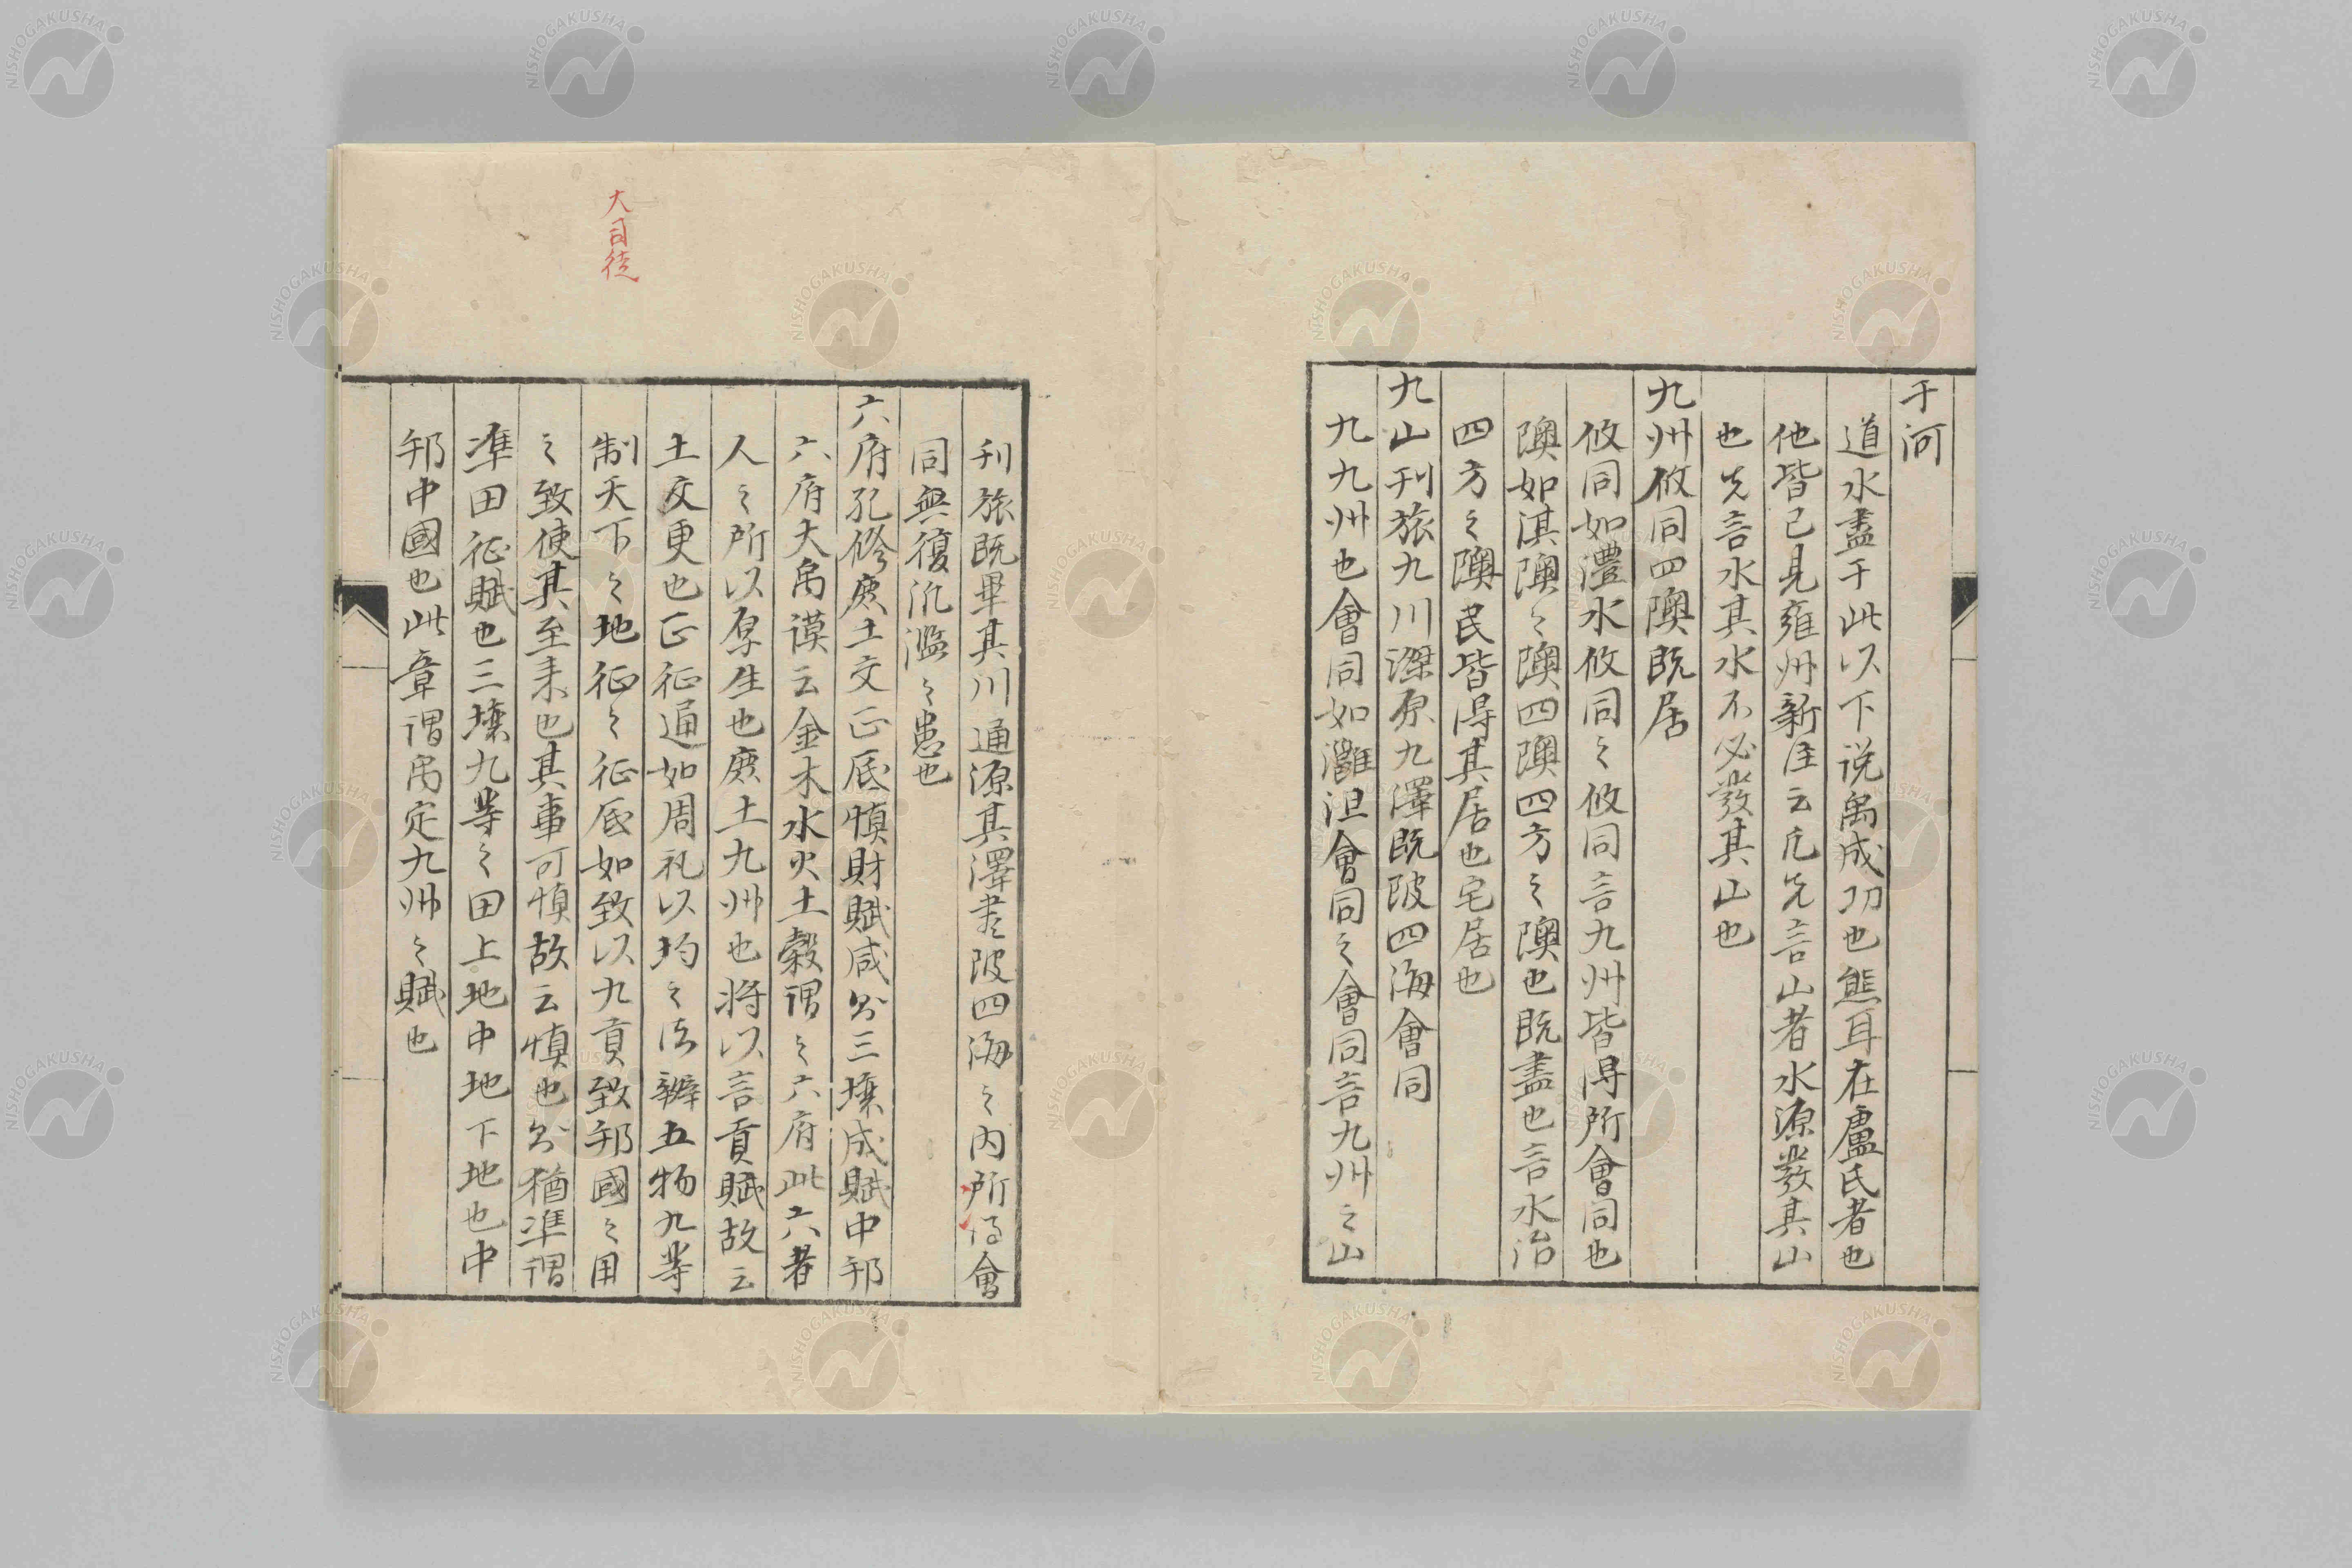 于河
道水盡于此以下説禹成功也熊耳在盧氏者也
他皆已見雍州新注云凡先言山者水源發其山
也先言水其水不必發其山也
九州攸同四隩既居
攸同如灃水攸同之攸同言九州皆得所會同也
隩如淇隩之隩四隩四方之隩也既盡也言水治
四方之隩民皆得其居也宅居也
九山刊旅九川滌原九澤既陂四海會同
九九州也會同如灉沮會同之會同言九州之山
刊旅既畢其川通源其澤盡陂四海之内所得會
同無復氾濫之患也
六府孔修庶土交正厎慎財賦咸則三壤成賦中邦
六府大禹謨云金木水火土穀謂之六府此六者
人之所以厚生也庶土九州也将以言貢賦故云
土交更也正征通如周礼以均之法辨五物九等
制天下之地征之征厎如致以九貢致邦國之用
之致使其至来也其事可慎故云慎也則猶準謂
準田征賦也三壤九等之田上地中地下地也中
邦中國也此章謂禹定九州之賦也
大司徒